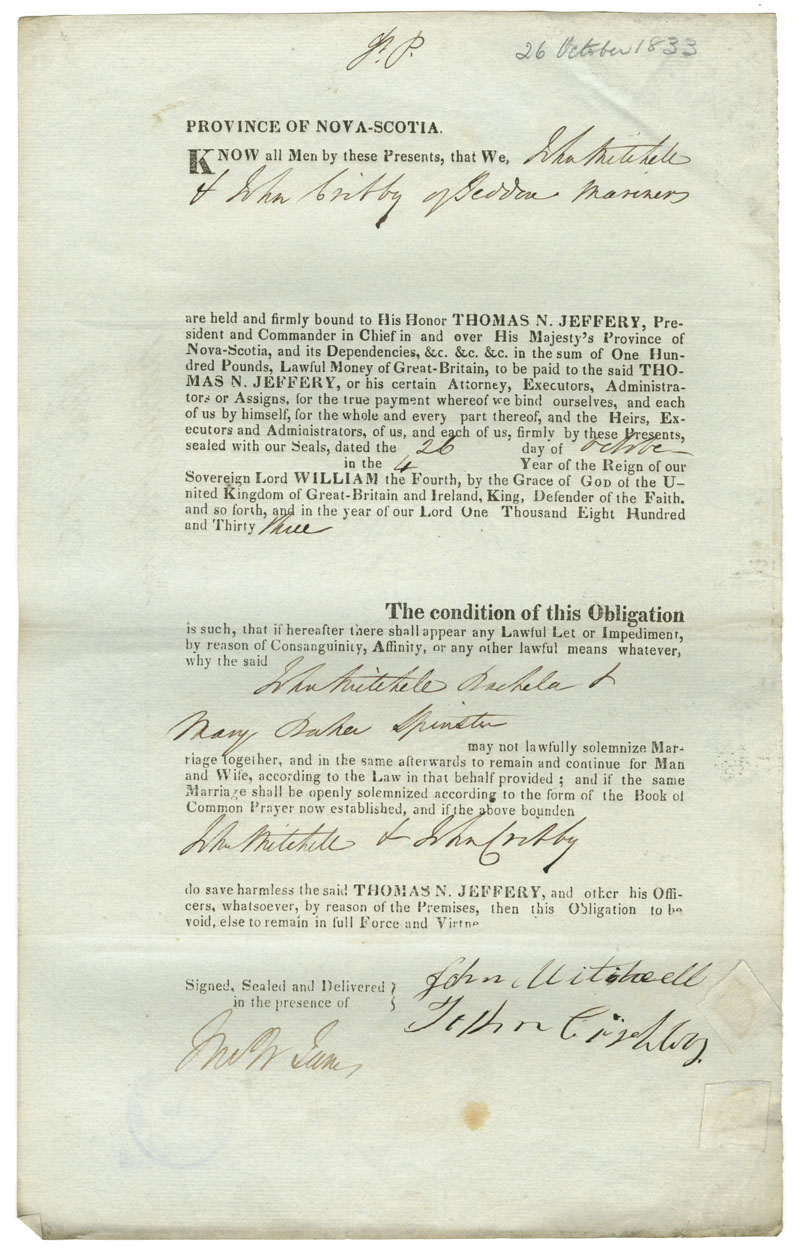 26 October 1833
PROVINCE OF NOVA-SCOTIA.
KNOW all Men by these Presents, that We, John Mitchell
& John Cribby of Mariners
are held and firmly bound to His Honor THOMAS N. JEFFERY, Pre-
sident and Commander in Chief in and over His Majesty's Province of
Nova-Scotia, and its Dependencies, &c. &c. &c. in the sum of One Hun-
dred Pounds, Lawful Money of Great-Britain, to be paid to the said THO-
MAS N. JEFFERY, or his certain Attorney, Executors, Administra-
tors or Assigns, for the true payment whereof we bind ourselves, and each
of us by himself, for the whole and every part thereof, and the Heirs, Ex-
ecutors and Administrators, of us, and each of us, firmly by these Presents,
sealed with our Seals, dated the 26 day of October
in the 4 Year of the Reign of our
Sovereign Lord WILLIAM the Fourth, by the Grace of GOD of the U-
nited Kingdom of Great-Britain and Ireland, King, Defender of the Faith.
and so forth, and in the year of our Lord One Thousand Eight Hundred
and Thirty three
The condition of this Obligation
is such, that if hereafter there shall appear any Lawful Let or Impediment,
by reason of Consanguinity, Affinity, or any other lawful means whatever,
why the said
John Mitchell Bachelor &
Mary Baker Spinster
may not lawfully solemnize Mar-
riage together, and in the same afterwards to remain and continue for Man
and Wife, according to the Law in that behalf provided ; and if the same
Marriage shall be openly solemnized according to the form of the Book of
Common Prayer now established, and if the above bounden
John Mitchell & John Cribby
do save harmless the said THOMAS N. JEFFERY, and other his Offi-
cers, whatsoever, by reason of the Premises, then this Obligation to be
void, else to remain in full Force and Virtne
Signed, Sealed and Delivered
in the presence of
John Mitchell